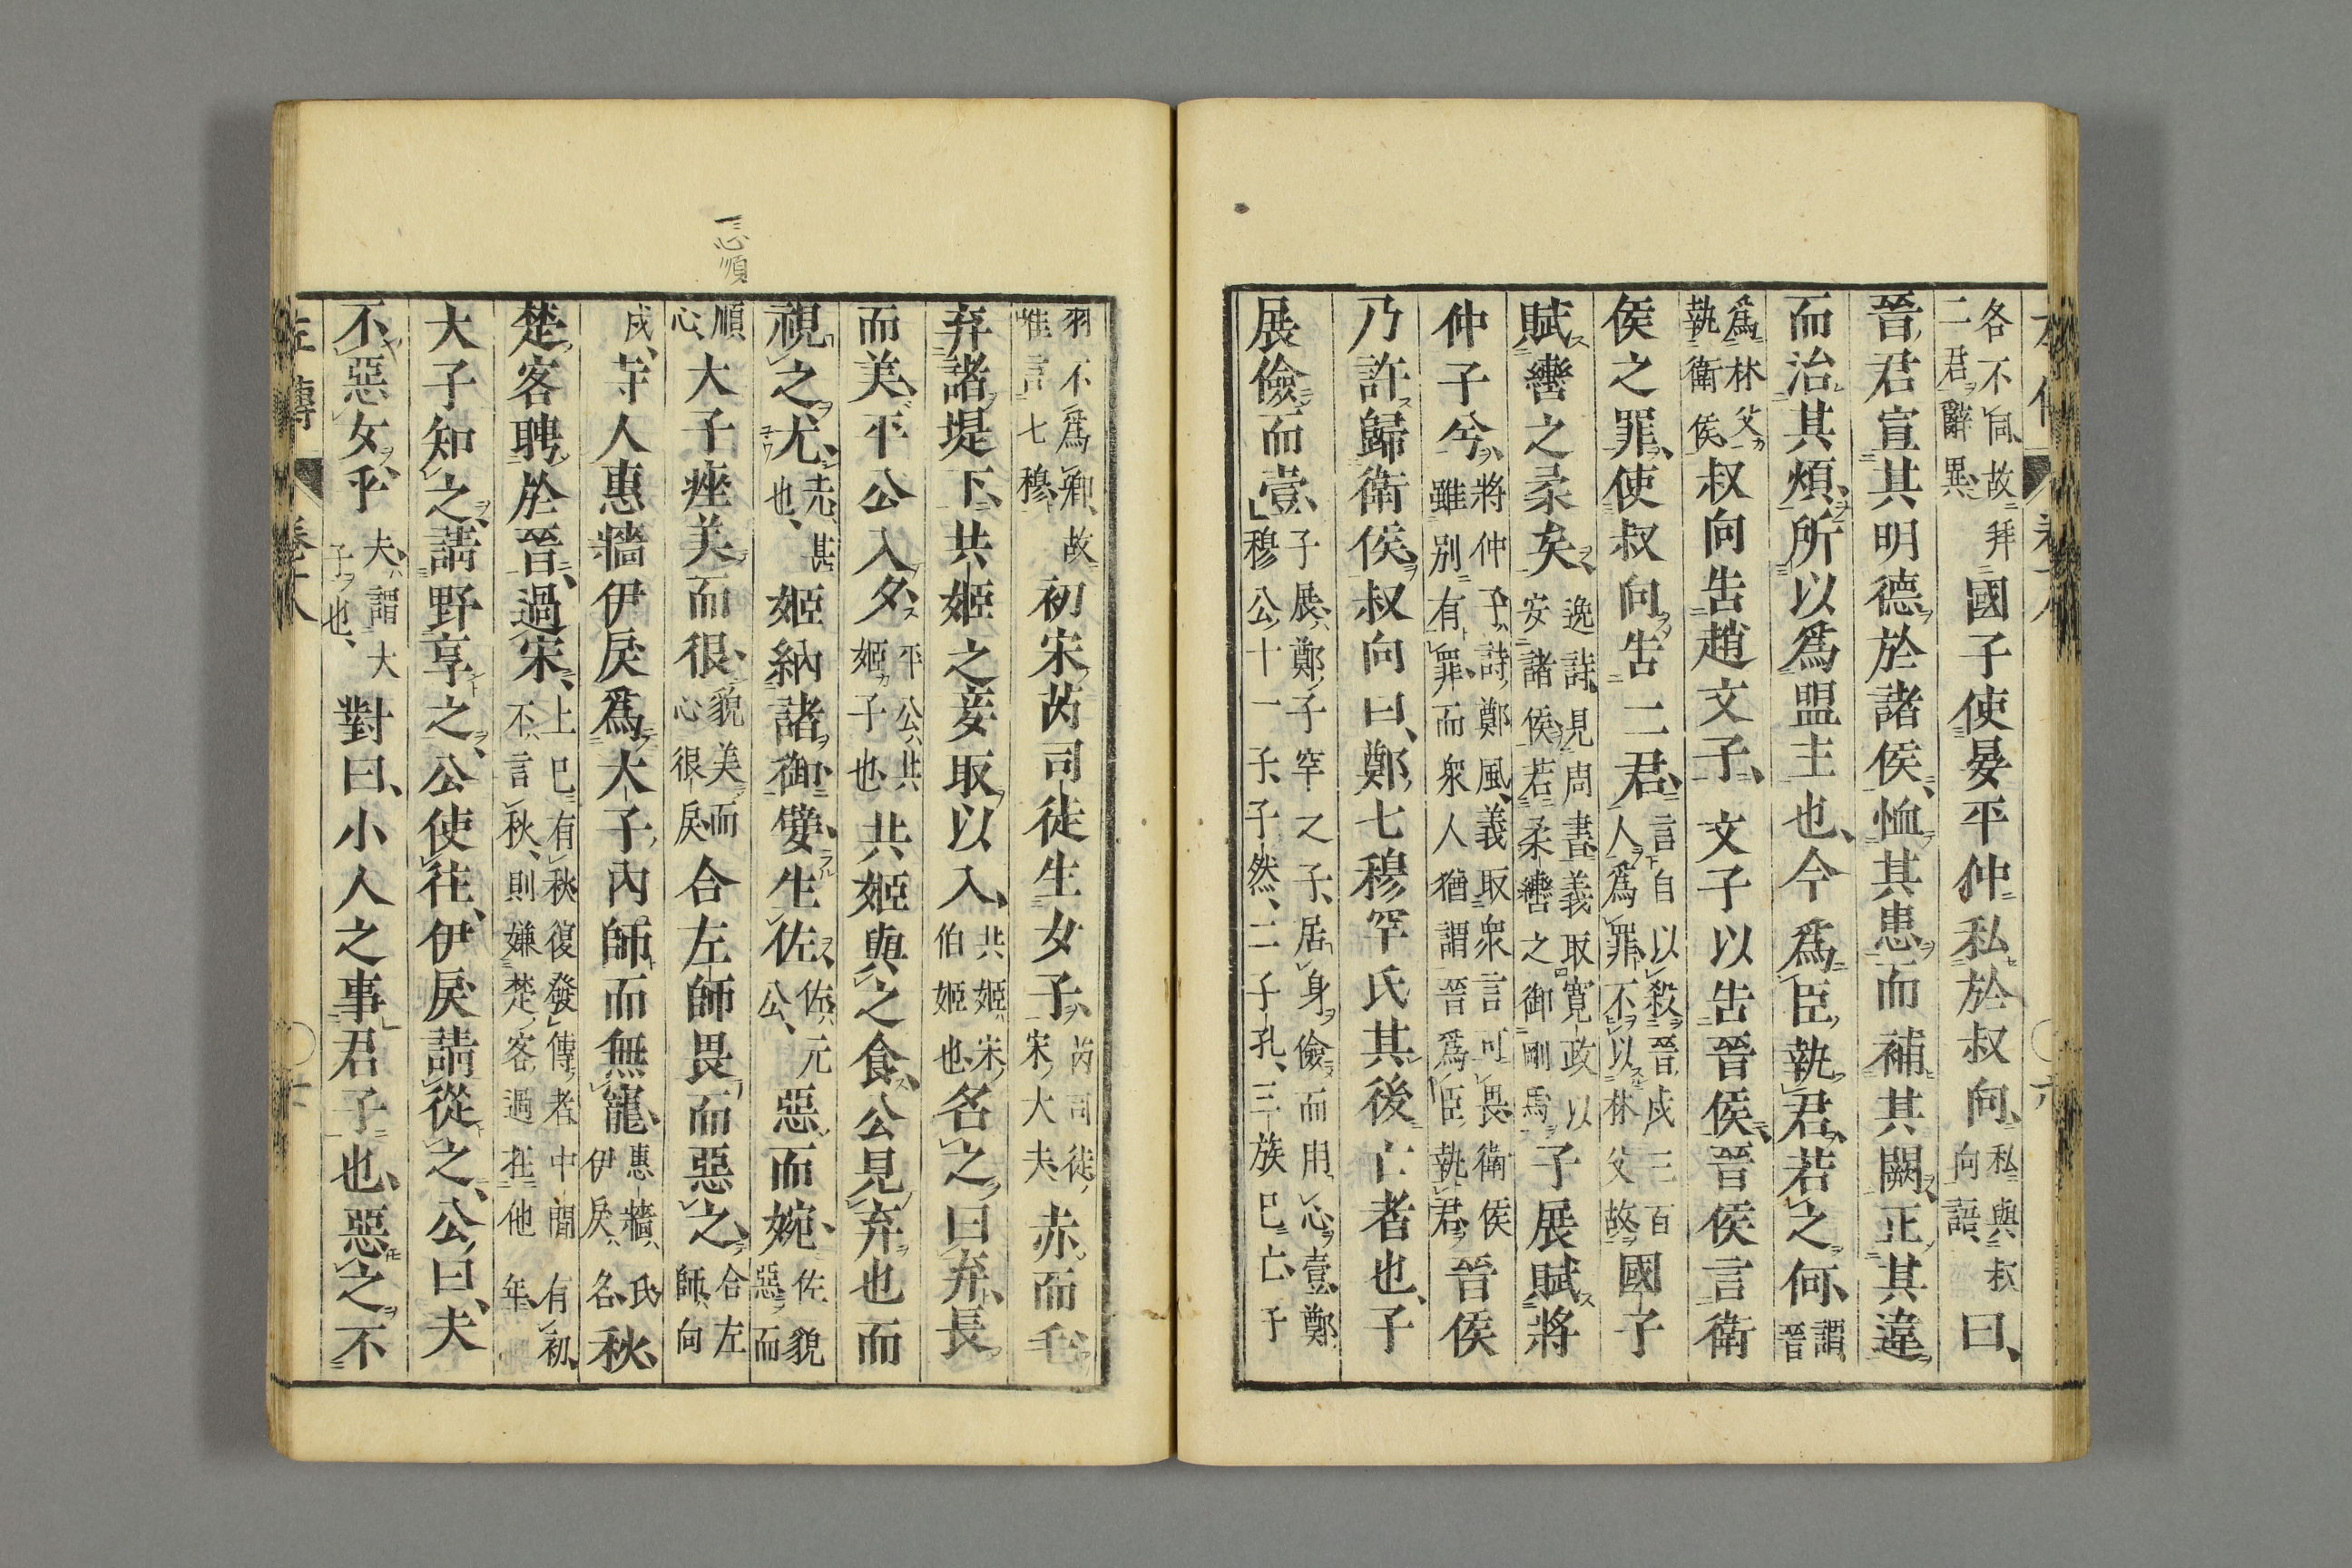 各不同故拜
二君辭異
國子使晏平仲私於叔向
私與叔
向語
曰
晉君宣其明德於諸侯恤其患而補其闕正其違
而治其煩所以爲盟主也今爲臣執君若之何
謂晉
爲林父
執衛侯
叔向告趙文子文子以告晉侯晉侯言衛
侯之罪使叔向告二君
言自以殺晉戍三百
人爲罪不以林父故
國子
賦轡之柔矣
逸詩見周書義取寬政以
安諸侯若柔轡之御剛馬
子展賦將
仲子兮
將仲子詩鄭風義取衆言可畏衛侯
雖別有罪而衆人猶謂晉爲臣執君
晉侯
乃許歸衛侯叔向曰鄭七穆罕氏其後亡者也子
展儉而壹
子展鄭子罕之子居身儉而用心壹鄭
穆公十一子子然二子孔三族已亡子
羽不爲卿故
唯言七穆
初宋芮司徒生女子
芮司徒
宋大夫
赤而毛
弃諸堤下共姬之妾取以入
共姬宋
伯姬也
名之曰弃長
而美平公入夕
平公共
姬子也
共姬與之食公見弃也而
視之尤
尤甚
也
姬納諸御嬖生佐
佐元
公
惡而婉
佐貌
惡而
心順
順
心
大子痤美而很
貌美而
心很戾
合左師畏而惡之
合左
師向
戌
寺人惠牆伊戾爲大子內師而無寵
惠牆氏
伊戾名
秋
楚客聘於晉過宋
上已有秋復發傳者中間有初
不言秋則嫌楚客過在他年
大子知之請野享之公使往伊戾請從之公曰夫
不惡女乎
夫謂大
子也
對曰小人之事君子也惡之不
左傳
卷十八